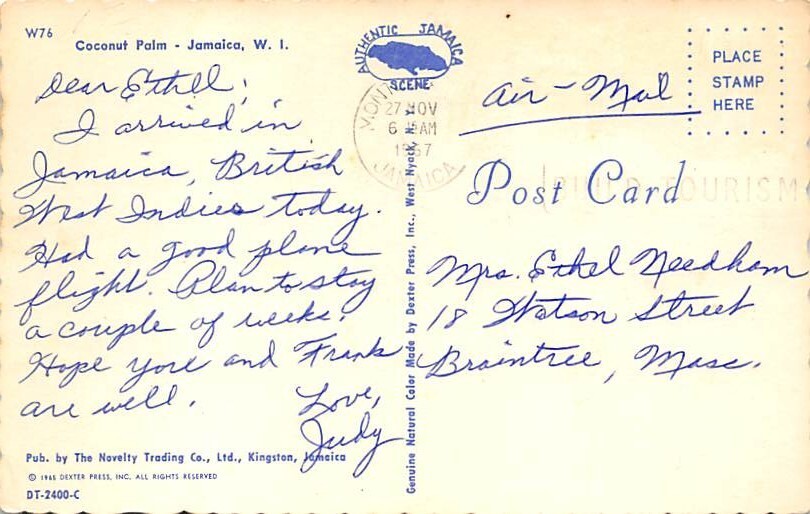 W76
Coconut Palm - Jamaica, W. I.
Dear Ethel;
I arrived in
Jamaica, British
West Indies today.
Had a good plane
flight. Plan to stay
a couple of weeks.
Hope you and Frank
are well.
Love,
Judy
Pub. by The Novelty Trading Co., Ltd., Kingston, Jamaica
© 1965 DEXTER PRESS, INC. ALL RIGHTS RESERVED
DT-2400-C
AUTHENTIC JAMAICA
SCENE
MONT
27 NOV
6 AM
1967
JAMAICA
Genuine Natural Color Made by Dexter Press, Inc., West Nyack, N. Y.
Air-Mail
PLACE
STAMP
HERE
Post Card
BUILD TOURISM
Mrs. Ethel Needham
18 Watson Street
Braintree, Mass.